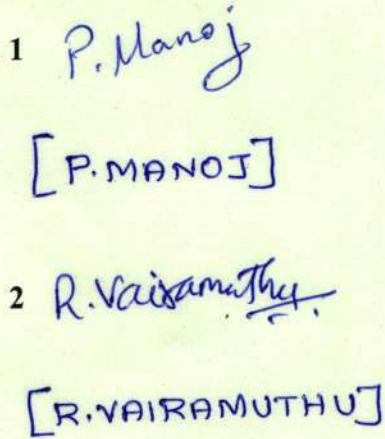 1 P. Manoj
[P. MANOJ]
2 R. Vairamuthu
[R. VAIRAMUTHU]